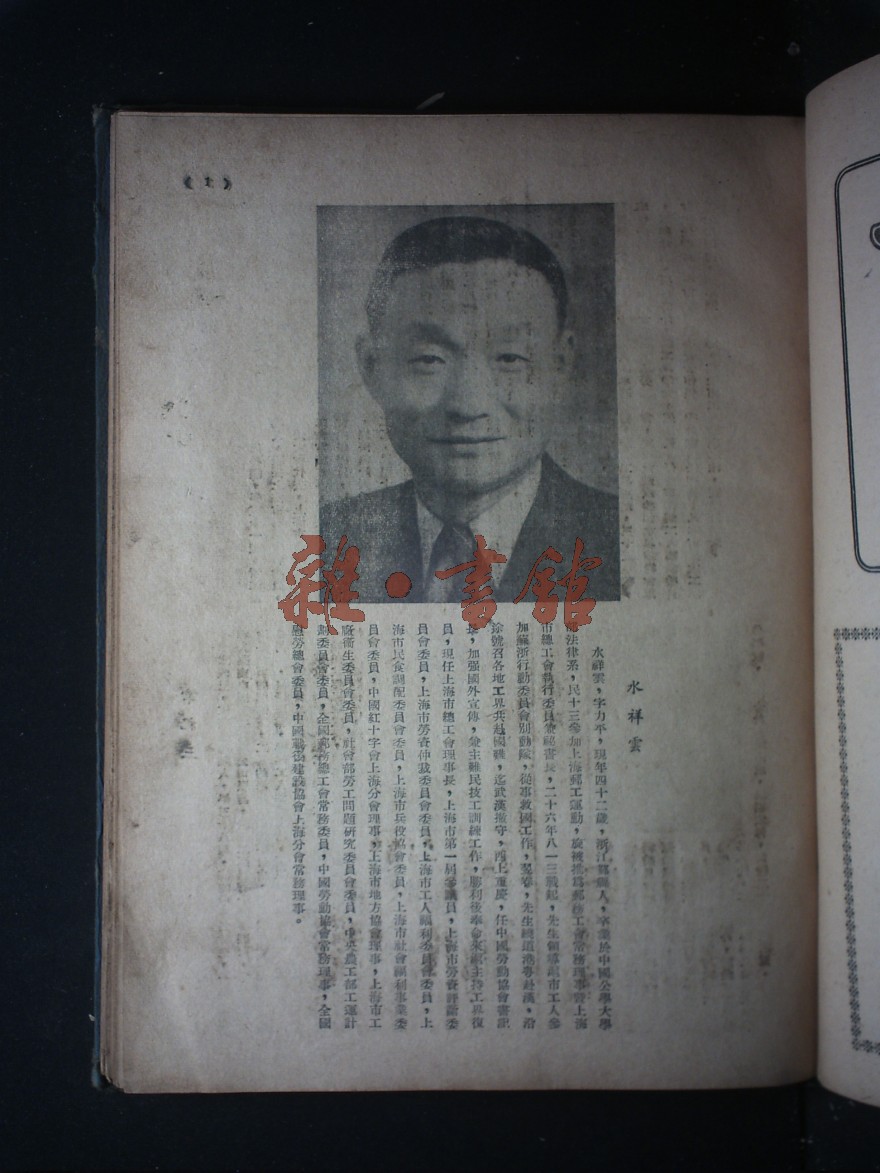 《1》
雜·書館
水祥雲
水祥雲，字力平，現年四十二歲，浙江鄞縣人，卒業於中國公學大學
部法律系，民十三參加上海郵工運動，旋被推為郵務工會常務理事暨上海
市總工會執行委員兼秘書長，二十六年八一三戰起，先生領導滬市工人參
加蘇浙行動委員會別動隊，從事救國工作，翌春，先生繞道港粵赴漢，沿
途號召各地工界共赴國難，迄武漢撤守，西上重慶，任中國勞動協會書記
長，加强國外宣傳，兼主難民技工訓練工作，勝利後奉命來滬主持工界復
員，現任上海市總工會理事長，上海市第一屆參議員，上海市勞資評斷委
員會委員，上海市勞資仲裁委員會委員，上海市工人福利委員會委員，上
海市民食調配委員會委員，上海市兵役協會委員，上海市社會福利事業委
員會委員，中國紅十字會上海分會理事，上海市地方協會理事，上海市工
廠衛生委員會委員，社會部勞工問題研究委員會委員，中央農工部工運計
劃委員會委員，全國郵務總工會常務委員，中國勞動協會常務理事，全國
慰勞總會委員，中國戰後建設協會上海分會常務理事。